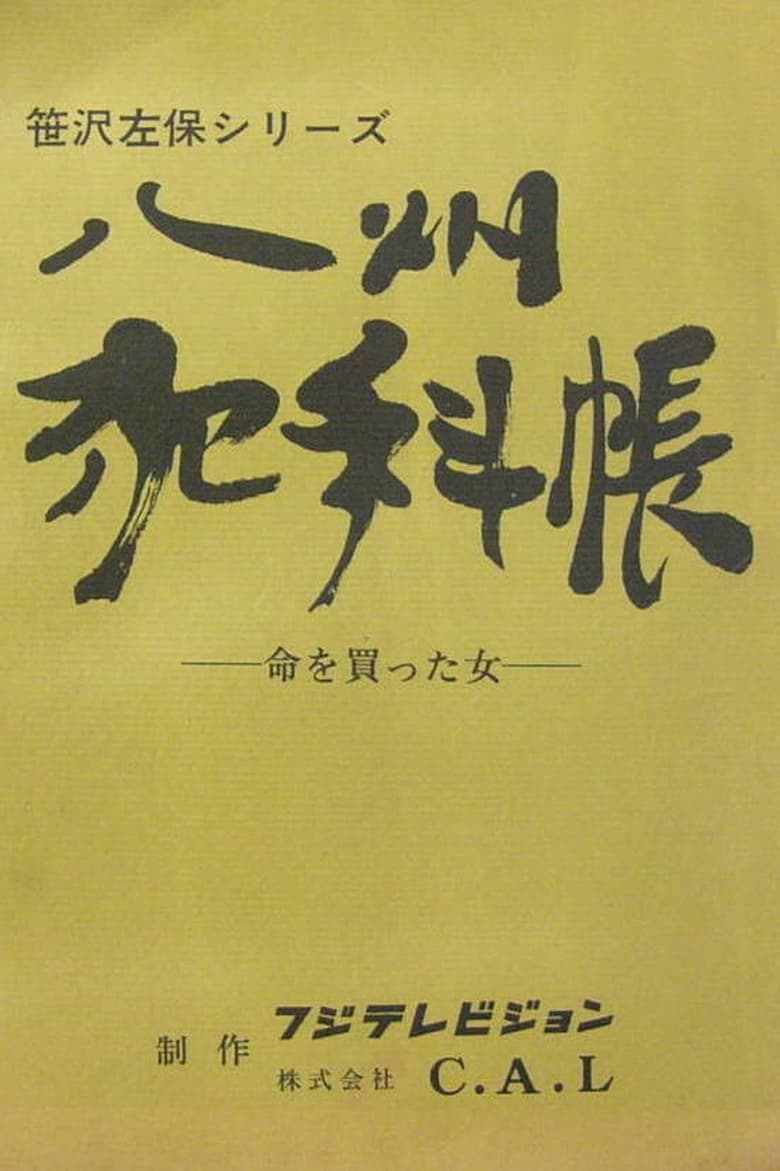 笹沢左保シリーズ
八州
犯科帳
―命を買った女―
制作 フジテレビジョン
株式会社 C.A.L